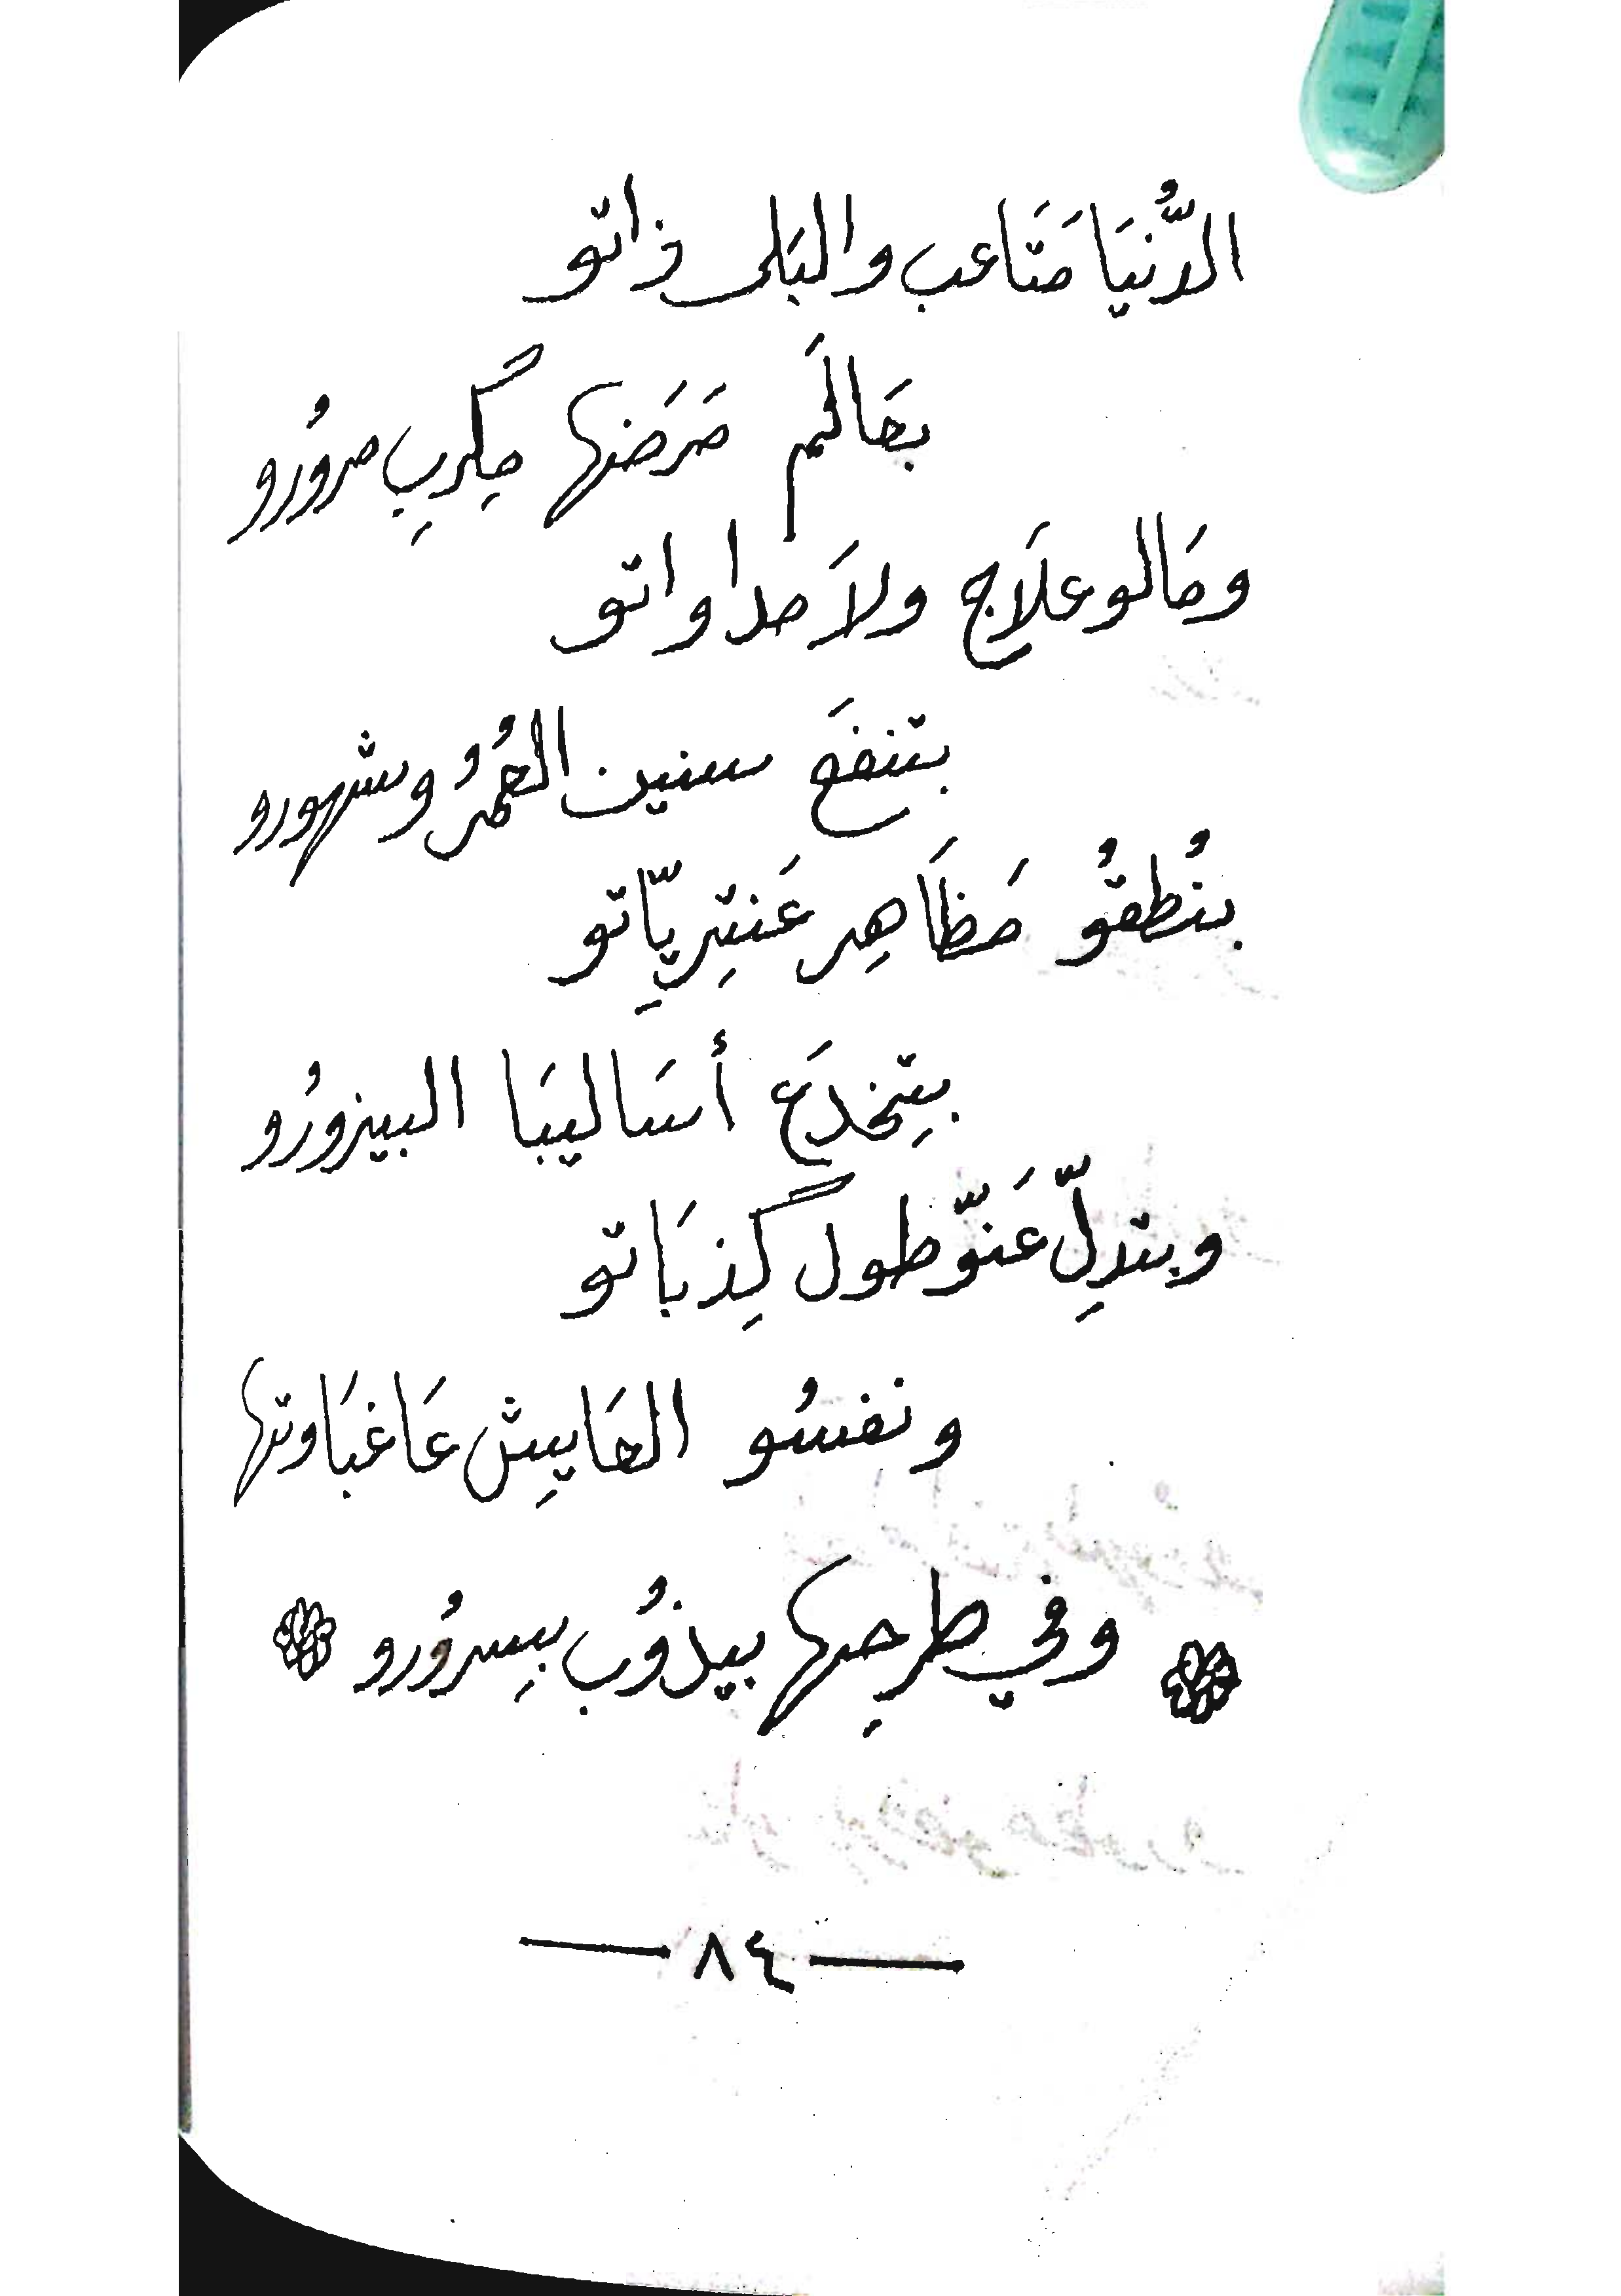 الدُّنيَا مَتَاعب والبَلى ذاتو
بعَالَم مَرَضها مِكرِب مرورُو
ومَالو علَاج ولَا مداواتو
بتنفَع سنين العُمرُ وشهورو
بنُطقُو مَظَاهِر عَنتِريِّاتو
بيِتخدَع أسَاليبَا البيزورُو
وبتدِلِّ عَنوّ طول كِذبَاتو
ونفسُو العَايِش عَاغبَاوتها
وفي طرحِها بيذوُب بسِرُورو
— ٨٤ —